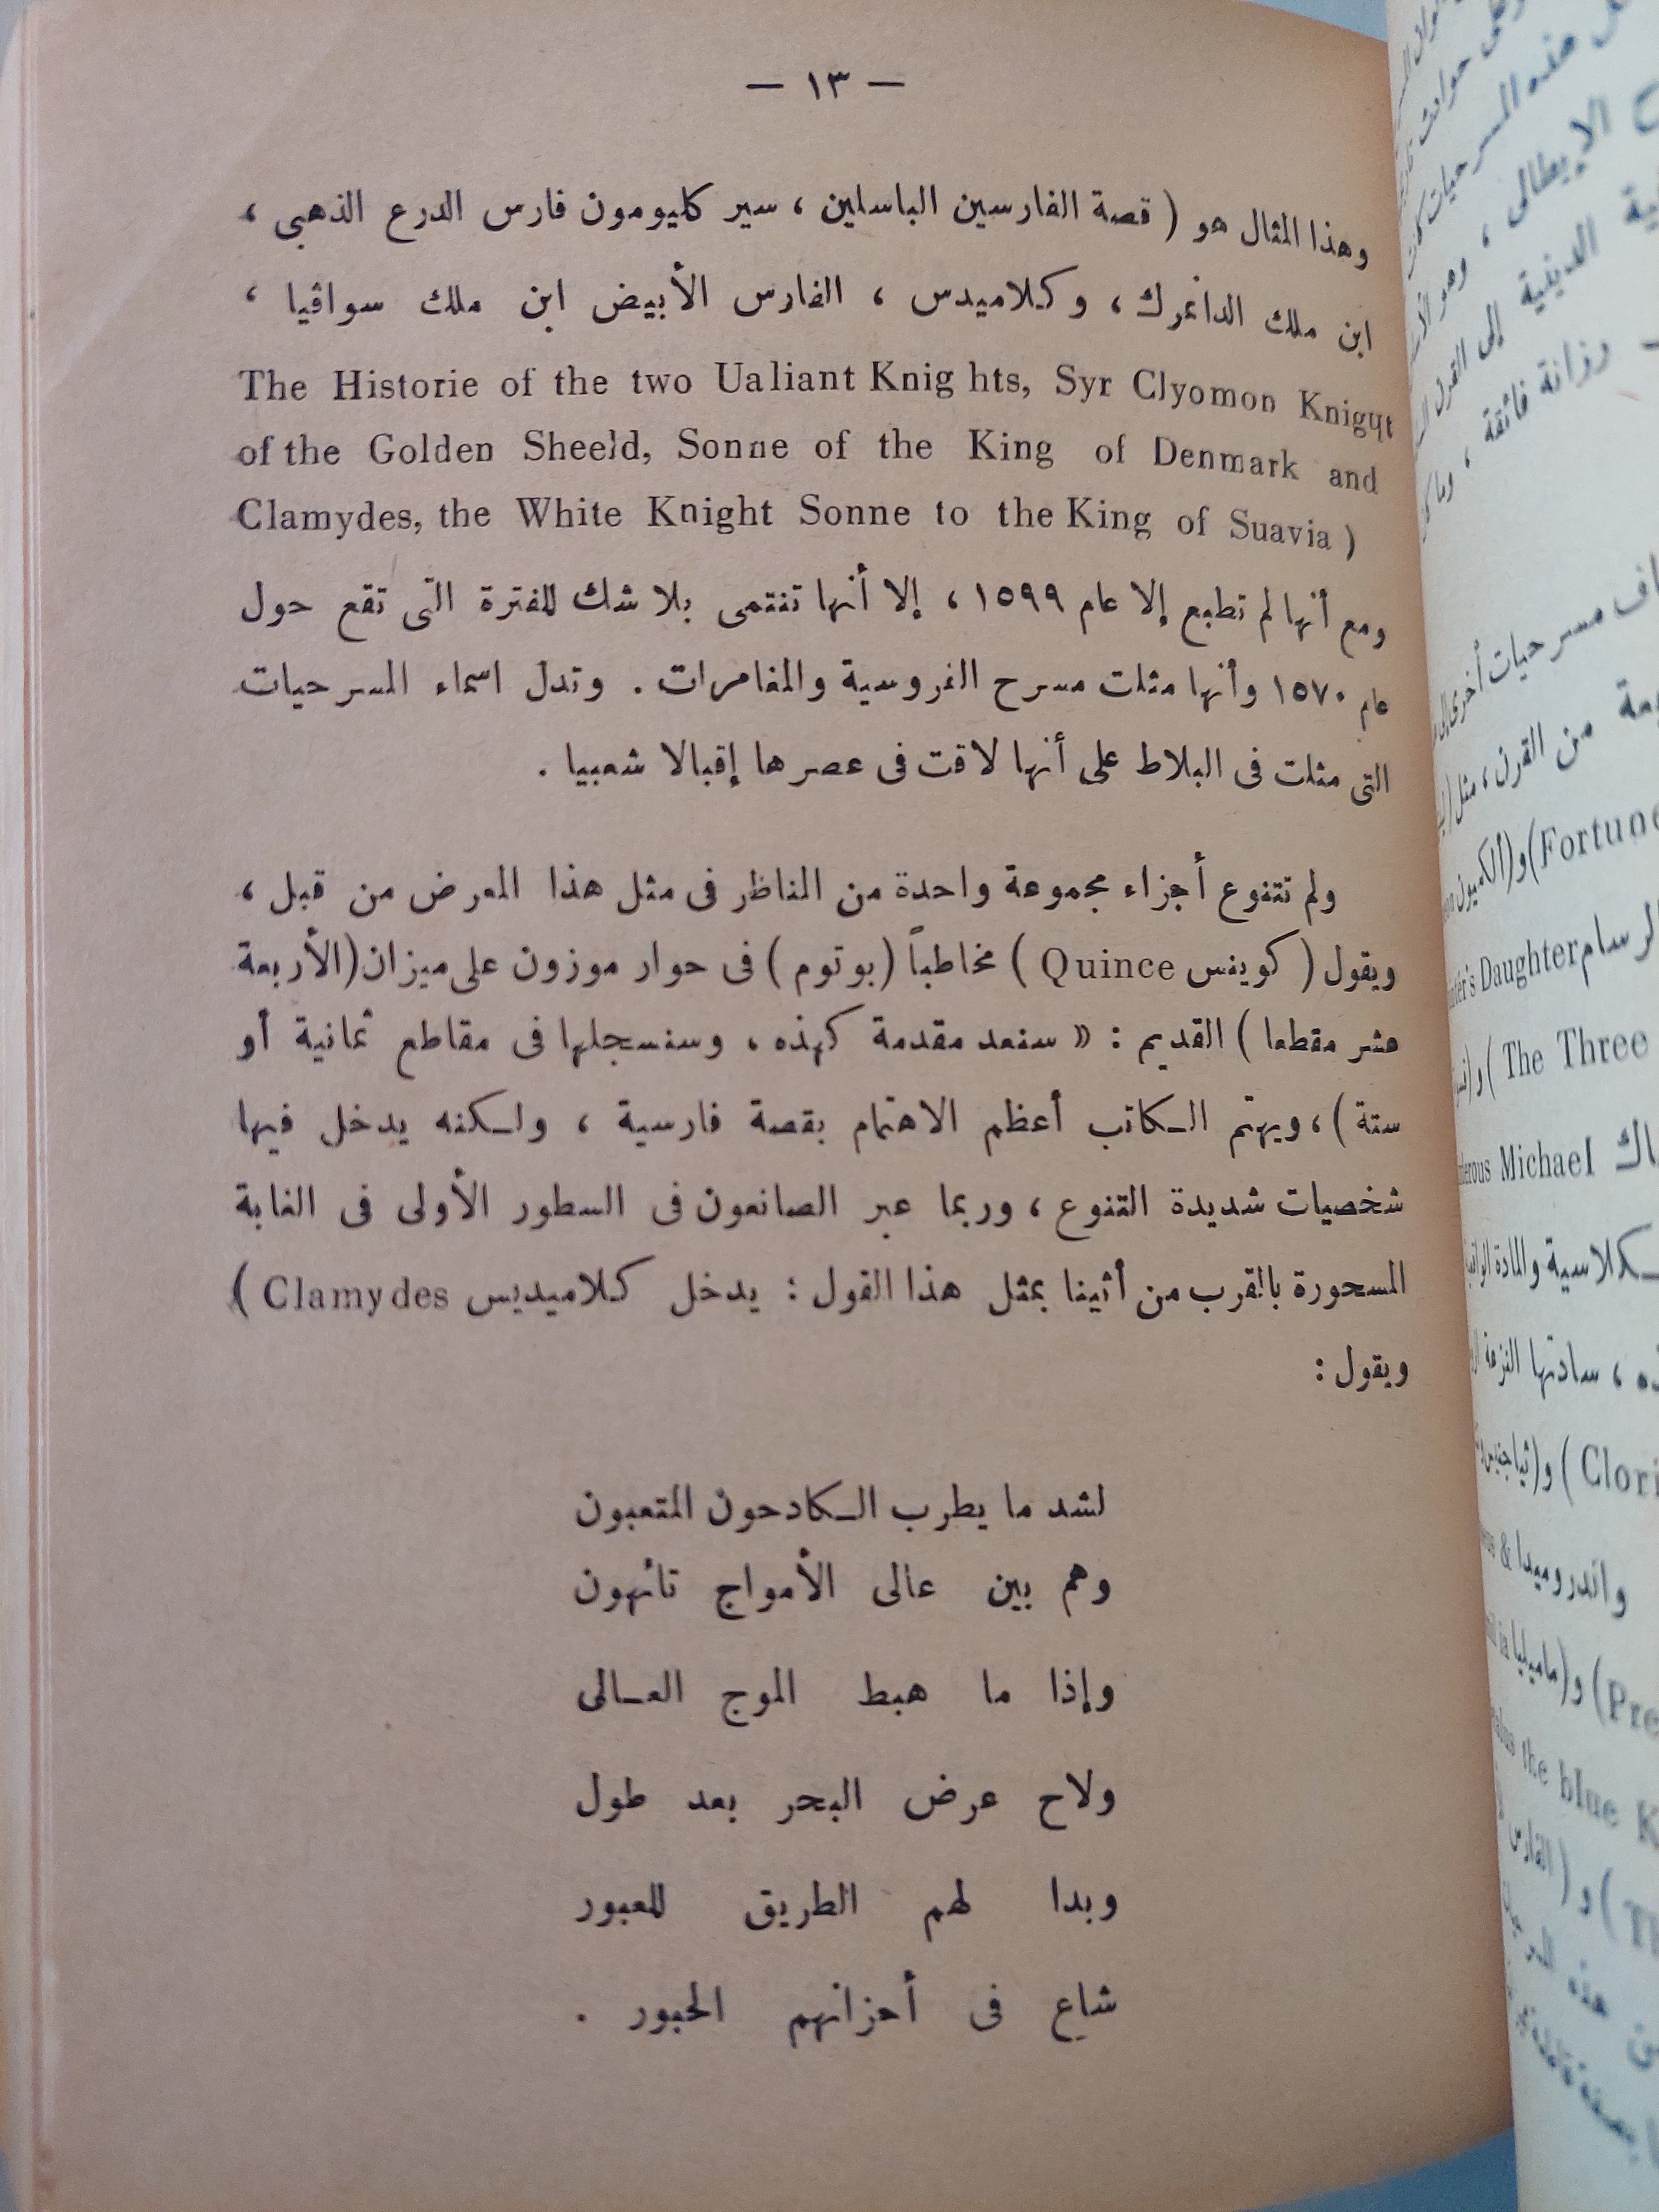 — ١٣ —
وهذا المثال هو ( قصة الفارسين الباسلين ، سير كليومون فارس الدرع الذهبى ،
ابن ملك الدانمرك ، وكلاميدس ، الفارس الأبيض ابن ملك سواڤيا ،
The Historie of the two Ualiant Knig hts, Syr Clyomon Knigųt
of the Golden Sheeld, Sonne of the King of Denmark and
Clamydes, the White Knight Sonne to the King of Suavia )
ومع أنها لم تطبع إلا عام ١٥٩٩ ، إلا أنها تنتمى بلا شك للفترة التى تقع حول
عام ١٥٧٠ وأنها مثلت مسرح الفروسية والمغامرات . وتدل اسماء المسرحيات
التى مثلت فى البلاط على أنها لاقت فى عصرها إقبالا شعبيا .
ولم تتنوع أجزاء مجموعة واحدة من المناظر فى مثل هذا المعرض من قبل ،
ويقول ( كوينس Quince ) مخاطباً ( بوتوم ) فى حوار موزون على ميزان (الأربعة
عشر مقطعا ) القديم : « سنعد مقدمة كهذه ، وسنسجلها فى مقاطع ثمانية أو
ستة ) ، ويهتم الكاتب أعظم الاهتمام بقصة فارسية ، ولكنه يدخل فيها
شخصيات شديدة التنوع ، وربما عبر الصانعون فى السطور الأولى فى الغابة
المسحورة بالقرب من أثينا بمثل هذا القول : يدخل كلاميديس Clamydes )
ويقول :
لشد ما يطرب الكادحون المتعبون
وهم بين عالى الأمواج تائهون
وإذا ما هبط الموج العالى
ولاح عرض البحر بعد طول
وبدا لهم الطريق للعبور
شاع فى أحزانهم الحبور .
الإيطالى ، وهو
الدينية إلى القرن
رزانة فائقة ،
مسرحيات أخرى
من القرن ، مثل
Fortune ) و (
الرسام Daughter
The Three ) و (
Michael
كلاسية والمادة
، سادتها النزعة
( Clori
واندروميدا &
(Pre
the blue K